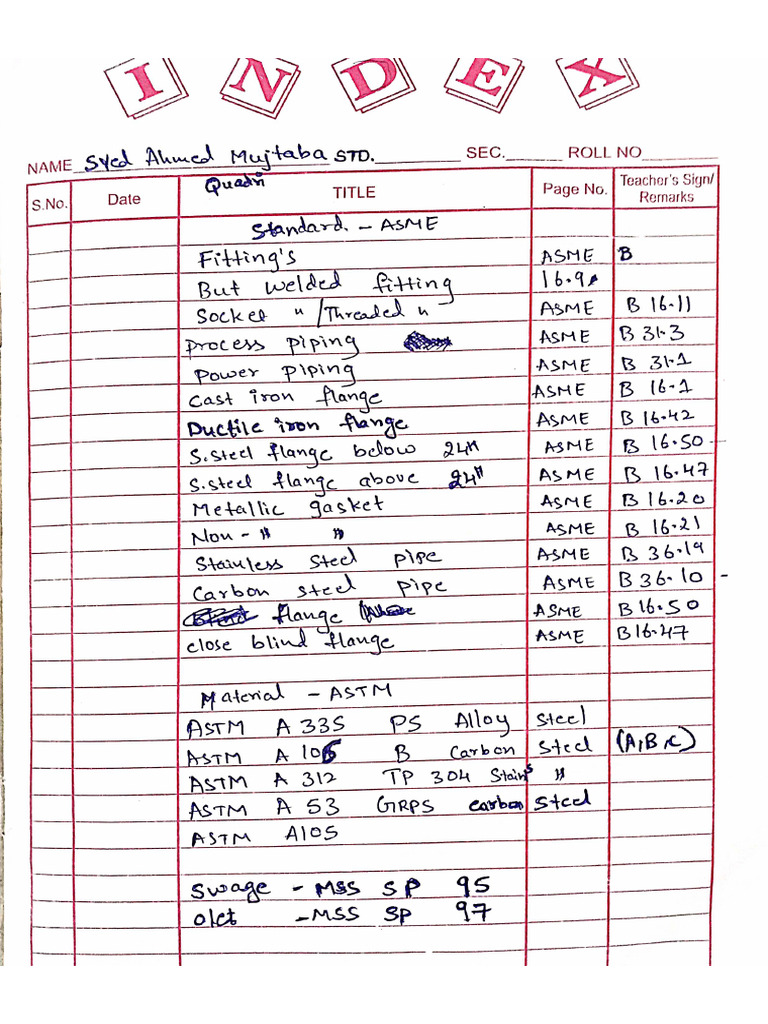 INDEX
NAME Syed Ahmed Mujtaba STD. SEC. ROLL NO
Quadri
S.No. Date TITLE Page No. Teacher's Sign/ Remarks
Standard. - ASME
Fitting's ASME B
But welded fitting 16.9
Socket " /Threaded " ASME B 16.11
process piping ASME B 31.3
power piping ASME B 31.1
cast iron flange ASME B 16.1
Ductile iron flange ASME B 16.42
S.steel flange below 24" ASME B 16.50
S.steel flange above 24" ASME B 16.47
Metallic gasket ASME B 16.20
Non - " " ASME B 16.21
Stainless steel pipe ASME B 36.19
Carbon steel pipe ASME B 36.10
flange ASME B16.50
close blind flange ASME B16.47
Material - ASTM
ASTM A 335 P5 Alloy steel
ASTM A 106 B Carbon steel (A,B,C)
ASTM A 312 TP 304 Stains "
ASTM A 53 GRPS carbon steel
ASTM A105
Swage - MSS SP 95
olet - MSS SP 97